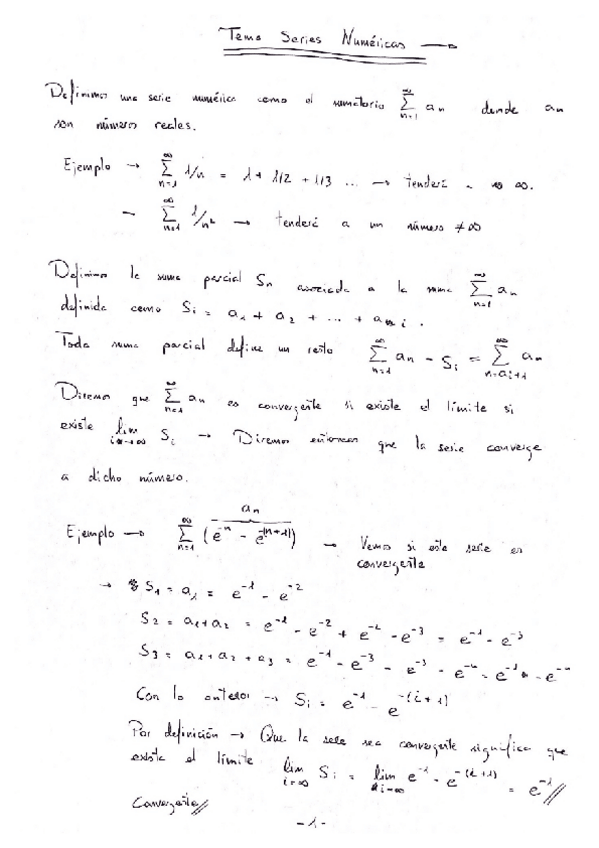 Tema Series Numéricas →
Definimos una serie numérica como el sumatorio ∑_{n=1}^{∞} a_n donde a_n
son números reales.
Ejemplo → ∑_{n=1}^{∞} 1/n = 1 + 1/2 + 1/3 ... → tenderá a ∞.
→ ∑_{n=1}^{∞} 1/n² → tenderá a un número ≠ ∞
Definimos la suma parcial S_n asociada a la suma ∑_{n=1}^{∞} a_n
definida como S_i = a_1 + a_2 + ... + a_i.
Toda suma parcial define un resto ∑_{n=1}^{∞} a_n - S_i = ∑_{n=i+1}^{∞} a_n
Diremos que ∑_{n=1}^{∞} a_n es convergente si existe el límite si
existe lim_{i→∞} S_i → Diremos entonces que la serie converge
a dicho número.
a_n
Ejemplo → ∑_{n=1}^{∞} (e^{-n} - e^{-(n+1)}) → Vemos si esta serie es
convergente
→ S_1 = a_1 = e^{-1} - e^{-2}
S_2 = a_1 + a_2 = e^{-1} - e^{-2} + e^{-2} - e^{-3} = e^{-1} - e^{-3}
S_3 = a_1 + a_2 + a_3 = e^{-1} - e^{-3} - e^{-3} - e^{-4} = e^{-1} - e^{-4}
Con lo anterior → S_i = e^{-1} - e^{-(i+1)}
Por definición → Que la serie sea convergente significa que
exista el límite lim_{i→∞} S_i = lim_{i→∞} e^{-1} - e^{-(i+1)} = e^{-1} //
Convergente //
-1-